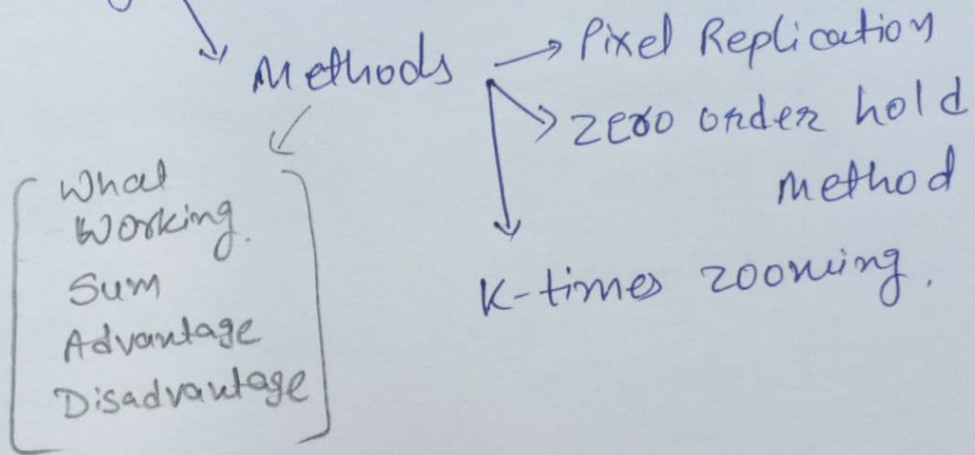 Methods
Pixel Replication
zero order hold
method
K-times zooming.
What
Working.
Sum
Advantage
Disadvantage